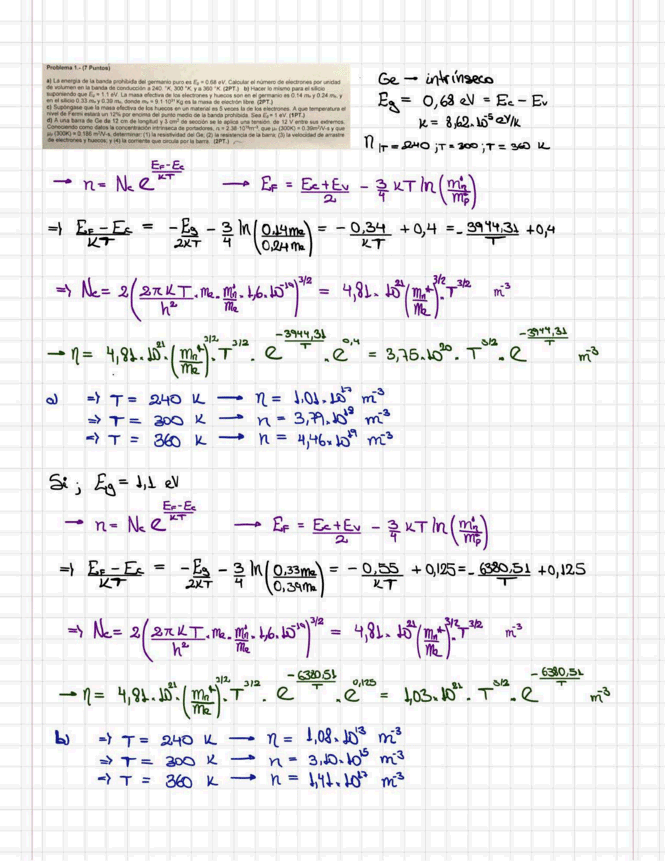 Problema 1.- (7 Puntos)
a) La energía de la banda prohibida del germanio puro es Eg = 0.68 eV. Calcular el número de electrones por unidad
de volumen en la banda de conducción a 240 °K, 300 °K y a 360 °K (2PT.) b) Hacer lo mismo para el silicio
suponiendo que Eg = 1.1 eV. La masa efectiva de los electrones y huecos son en el germanio es 0.14 me y 0.24 me, y
en el silicio 0.33 me y 0.39 me, donde me = 9.1 10³¹ Kg es la masa de electrón libre. (2PT.)
c) Supóngase que la masa efectiva de los huecos en un material es 5 veces la de los electrones. A que temperatura el
nivel de Fermi estará un 12% por encima del punto medio de la banda prohibida. Sea Eg = 1 eV. (1PT.)
d) A una barra de Ge de 12 cm de longitud y 3 cm² de sección se le aplica una tensión de 12 V entre sus extremos.
Conociendo como datos la concentración intrínseca de portadores, = 2.38·10¹⁹m⁻³, que (300K) = 0.39m²/V-s y que
(300K) = 0.186 m²/V-s, determinar: (1) la resistividad del Ge; (2) la resistencia de la barra; (3) la velocidad de arrastre
de electrones y huecos; y (4) la corriente que circula por la barra. (2PT.)
Ge → intrínseco
Eg = 0,68 eV = Ec - Ev
K = 8,62·10⁻⁵ eV/K
n|T=240 ; T=300 ; T=360 K
→ n = Nc e^((EF-Ec)/KT) → EF = (Ec+Ev)/2 - 3/4 KT ln(mn*/mp*)
⇒ (EF-Ec)/KT = -Eg/2KT - 3/4 ln(0,14me/0,24me) = -0,34/KT + 0,4 = -3944,31/T + 0,4
⇒ Nc = 2(2πKT/h² · me · mn*/me · 1,6·10⁻¹⁹)^3/2 = 4,81·10²¹(mn*/me)^3/2 · T^3/2 m⁻³
→ n = 4,81·10²¹·(mn*/me)^3/2 · T^3/2 · e^(-3944,31/T) · e^0,4 = 3,75·10²⁰ · T^3/2 · e^(-3944,31/T) m⁻³
a) ⇒ T = 240 K → n = 1,01·10¹⁷ m⁻³
⇒ T = 300 K → n = 3,79·10¹⁸ m⁻³
⇒ T = 360 K → n = 4,46·10¹⁹ m⁻³
Si ; Eg = 1,1 eV
→ n = Nc e^((EF-Ec)/KT) → EF = (Ec+Ev)/2 - 3/4 KT ln(mn*/mp*)
⇒ (EF-Ec)/KT = -Eg/2KT - 3/4 ln(0,33me/0,39me) = -0,55/KT + 0,125 = -6380,51/T + 0,125
⇒ Nc = 2(2πKT/h² · me · mn*/me · 1,6·10⁻¹⁹)^3/2 = 4,81·10²¹(mn*/me)^3/2 · T^3/2 m⁻³
→ n = 4,81·10²¹·(mn*/me)^3/2 · T^3/2 · e^(-6380,51/T) · e^0,125 = 1,03·10²¹ · T^3/2 · e^(-6380,51/T) m⁻³
b) ⇒ T = 240 K → n = 1,08·10¹³ m⁻³
⇒ T = 300 K → n = 3,10·10¹⁵ m⁻³
⇒ T = 360 K → n = 1,41·10¹⁷ m⁻³